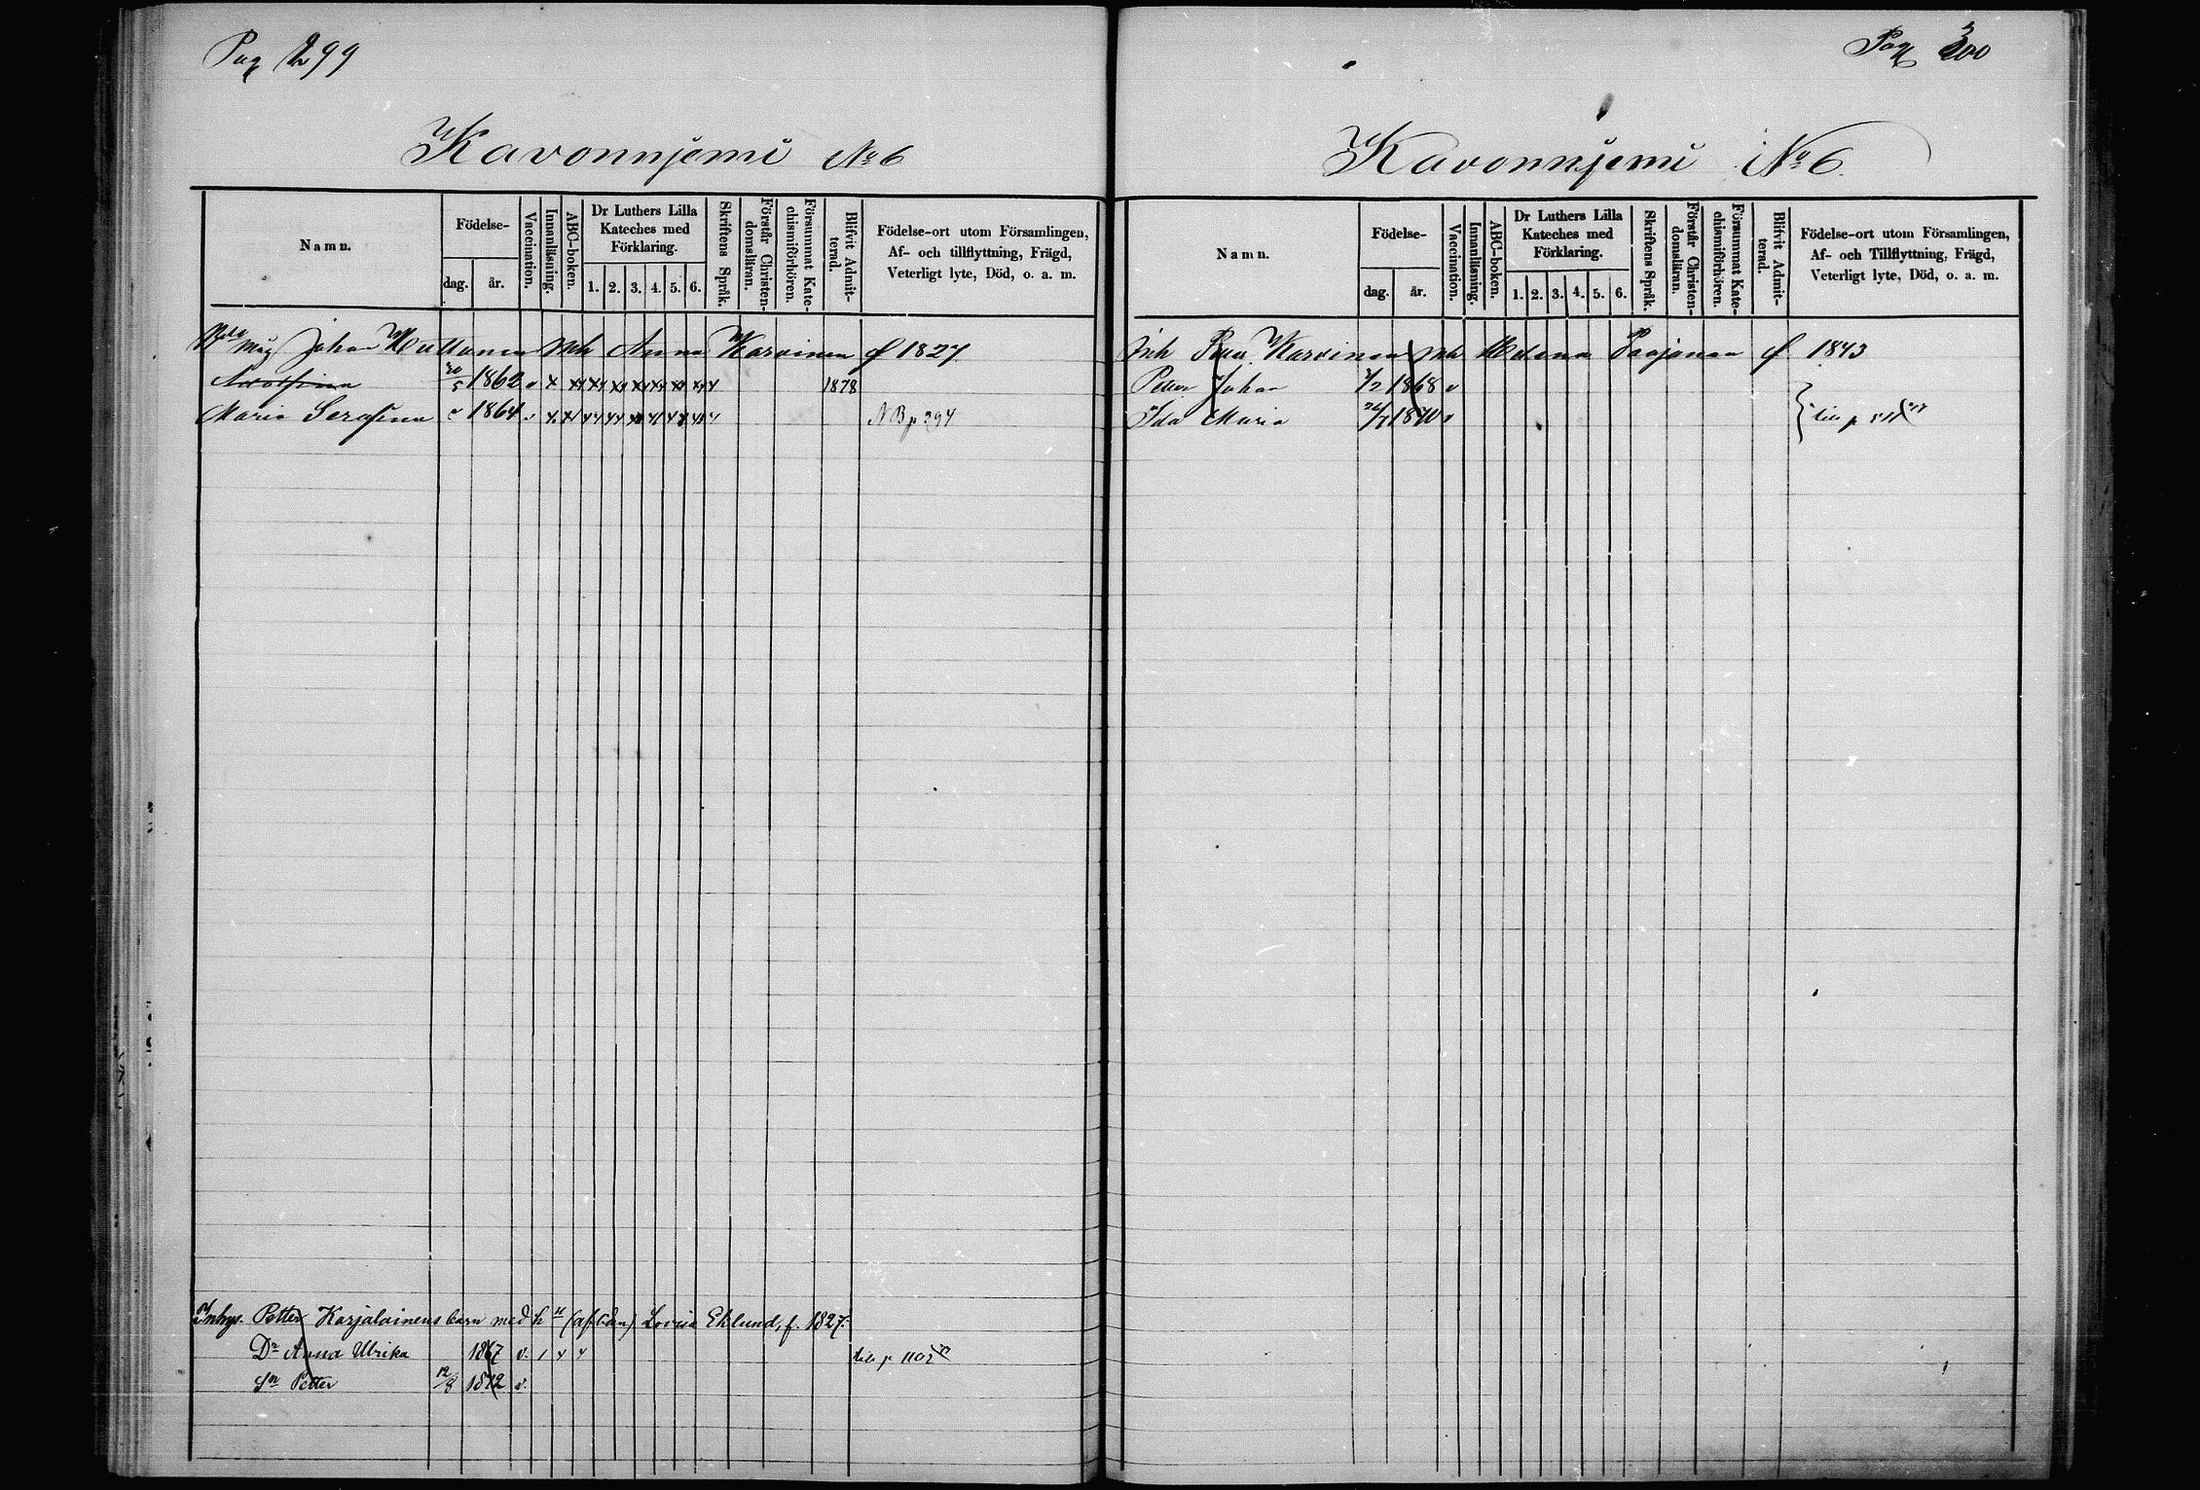 Pag 299
Kavonnjemi No 6
Namn.
Födelse-
dag.
år.
Vaccination.
Innanläsning.
ABC-boken.
Dr Luthers Lilla
Kateches med
Förklaring.
1. 2. 3. 4. 5. 6.
Skriftens Språk.
Förstår Christen-
domsläran.
Försummat Kate-
chismiförhören.
Blifvit Admit-
terad.
Födelse-ort utom Församlingen,
Af- och tillflyttning, Frägd,
Veterligt lyte, Död, o. a. m.
Johan mh Anna Karvinen f 1827
Adolfina 20/5 1862 v x 1878
Maria Serafina 1864 NB p 394
Inhys. Petter Karjalainens barn med h (afl dan) Lovisa Eklund, f. 1827.
Dr Anna Ulrika 1867 v. 1 x x till p 1103
Sn Petter 12/8 1872 v.
Pag 300
Kavonnjemi No 6.
Namn.
Födelse-
dag.
år.
Vaccination.
Innanläsning.
ABC-boken.
Dr Luthers Lilla
Kateches med
Förklaring.
1. 2. 3. 4. 5. 6.
Skriftens Språk.
Förstår Christen-
domslänn.
Försummat Kate-
chismiförhören.
Blifvit Admit-
terad.
Födelse-ort utom Församlingen,
Af- och Tillflyttning, Frägd,
Veterligt lyte, Död, o. a. m.
Inh Karvinen mh Helena Paajanen f 1843
Petter Johan 1/2 1868 v
Ida Maria 1870 v till p